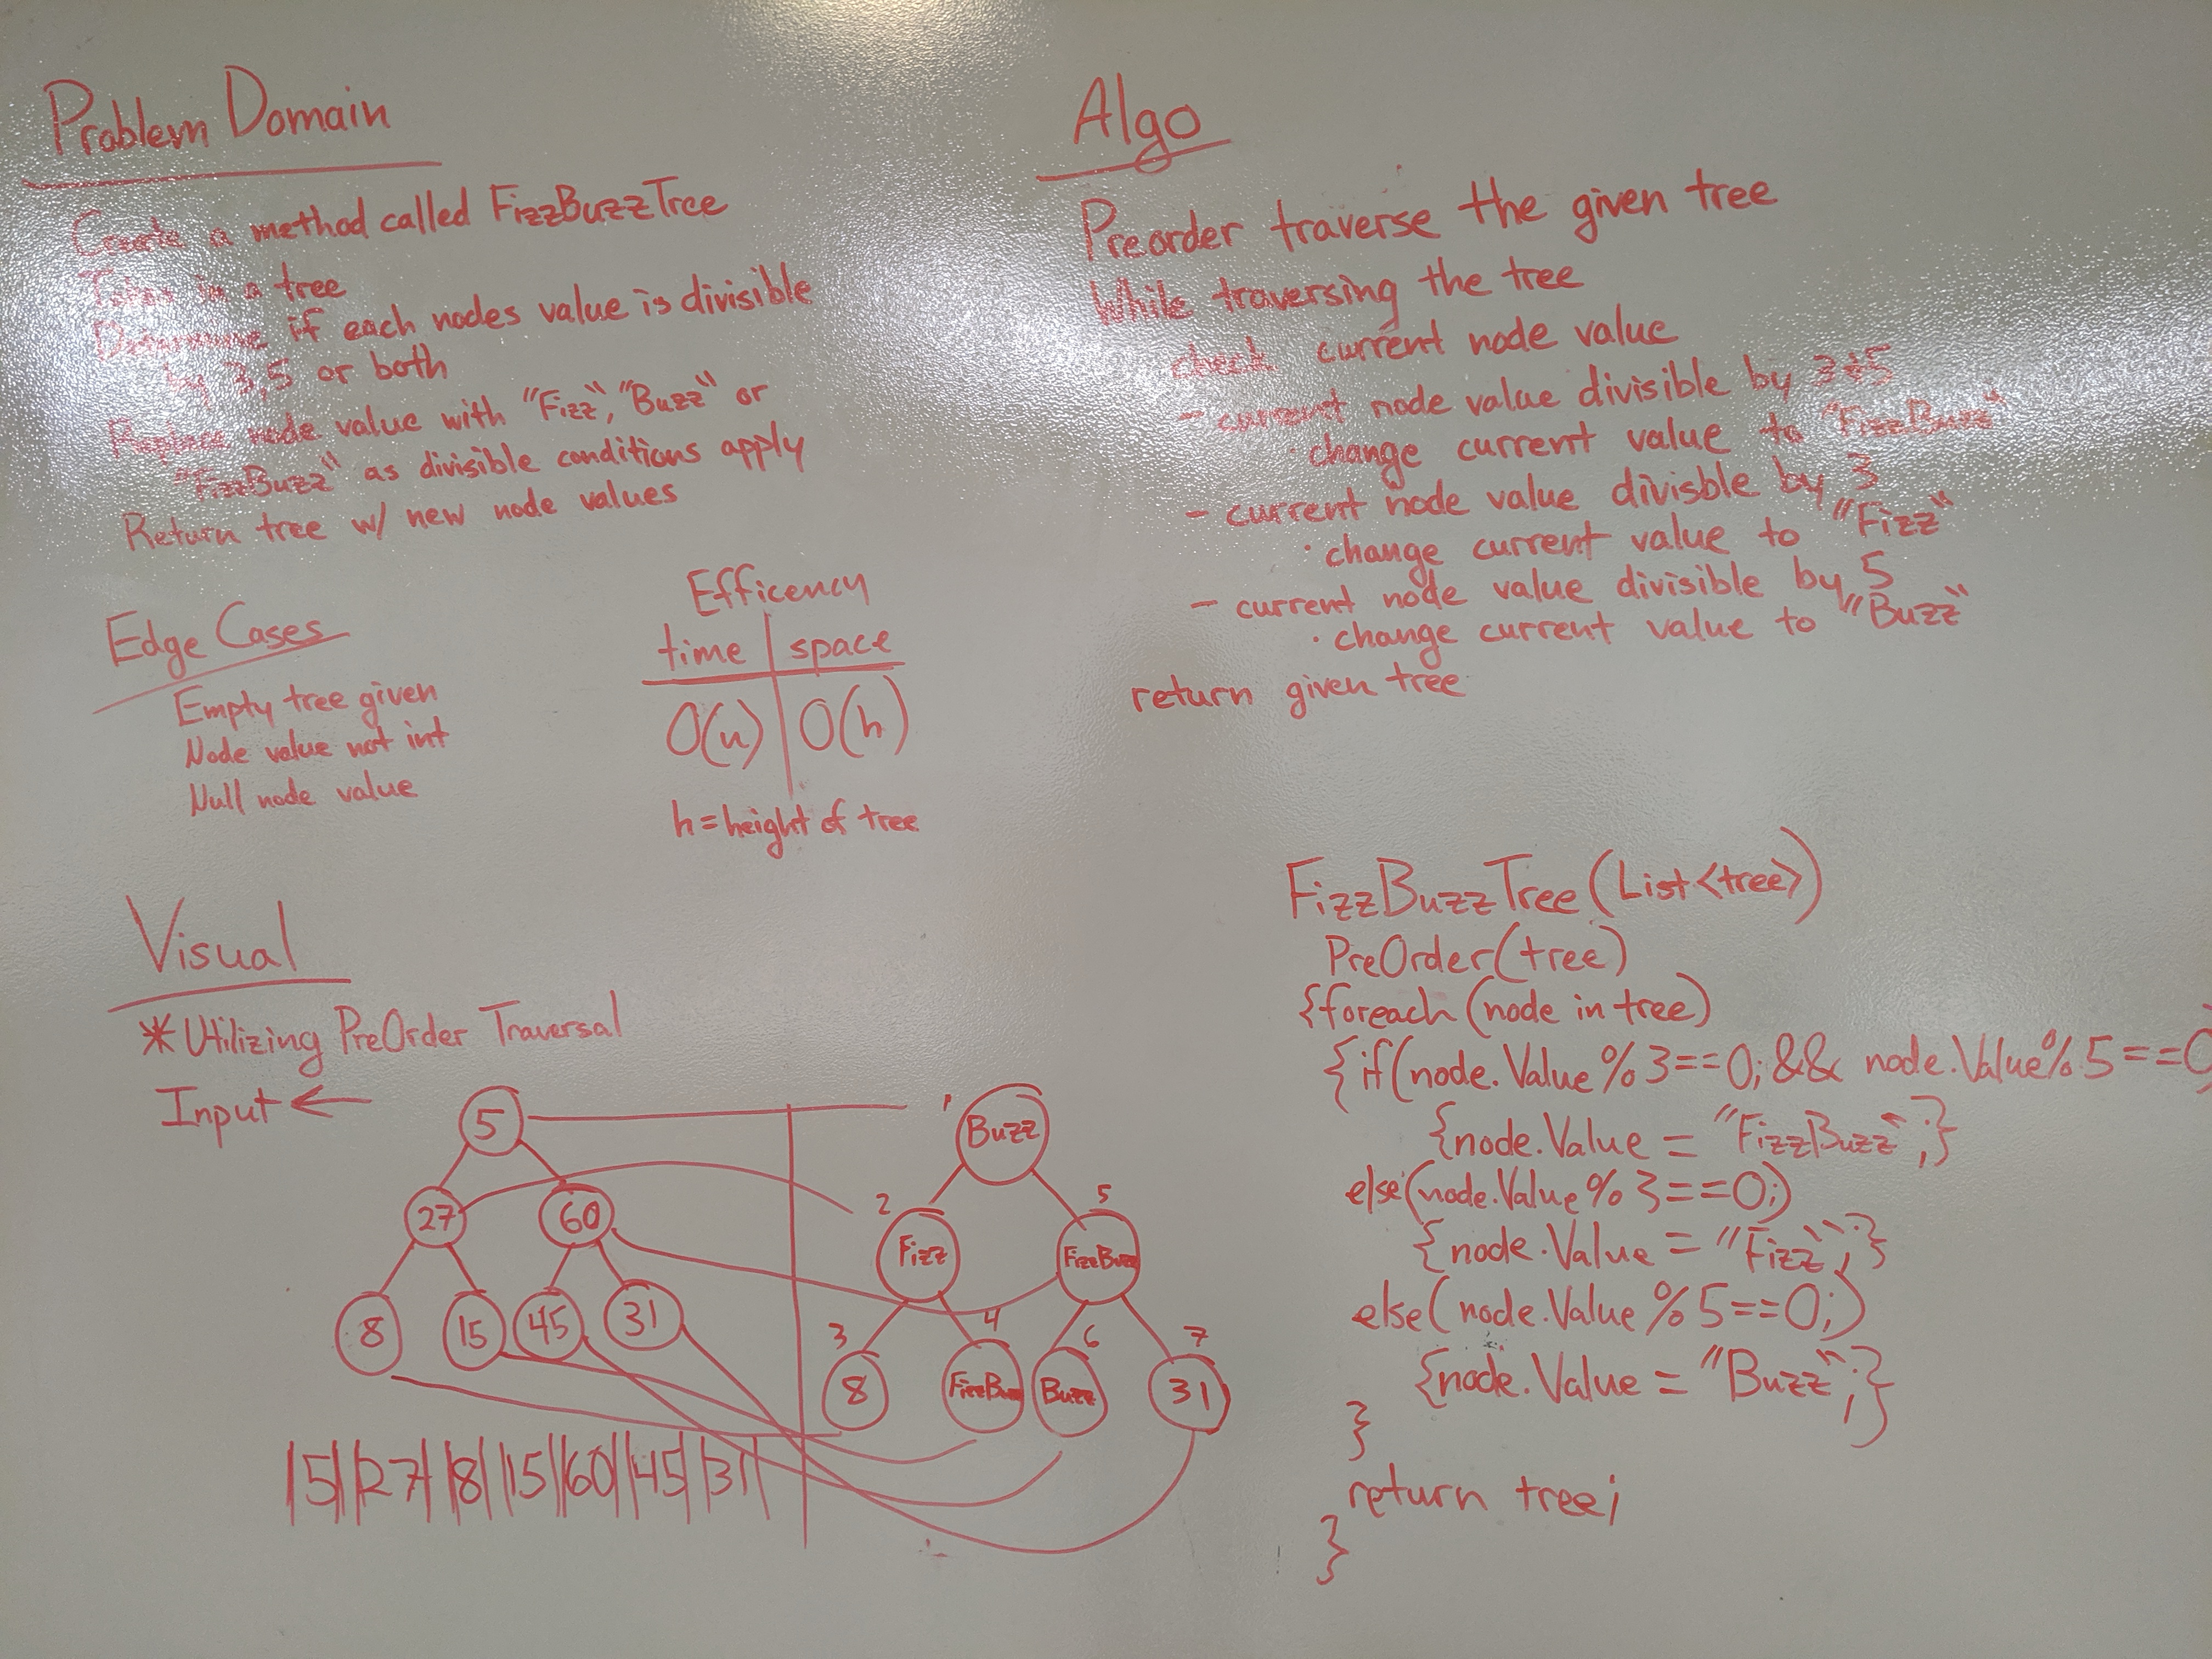 Problem Domain
Create a method called FizzBuzzTree
Takes in a tree
Determine if each nodes value is divisible
by 3,5 or both
Replace node value with "Fizz", "Buzz" or
"FizzBuzz" as divisible conditions apply
Return tree w/ new node values
Edge Cases
Empty tree given
Node value not int
Null node value
Efficency
time | space
O(n) | O(h)
h = height of tree
Visual
* Utilizing PreOrder Traversal
Input ←
5
27 60
8 15 45 31
|5||27||8||15||60||45||31|
1 Buzz
2 5
Fizz FizzBuzz
3 4 6 7
8 FizzBuzz Buzz 31
Algo
Preorder traverse the given tree
While traversing the tree
check current node value
- current node value divisible by 3+5
· change current value to "FizzBuzz"
- current node value divisble by 3
· change current value to "Fizz"
- current node value divisible by 5
· change current value to "Buzz"
return given tree
FizzBuzzTree(List<tree>)
PreOrder(tree)
{foreach(node in tree)
{if(node.Value % 3==0; && node.Value % 5==0
{node.Value = "FizzBuzz";}
else(node.Value % 3==0;)
{node.Value = "Fizz";}
else(node.Value % 5==0;)
{node.Value = "Buzz";}
}
return tree;
}